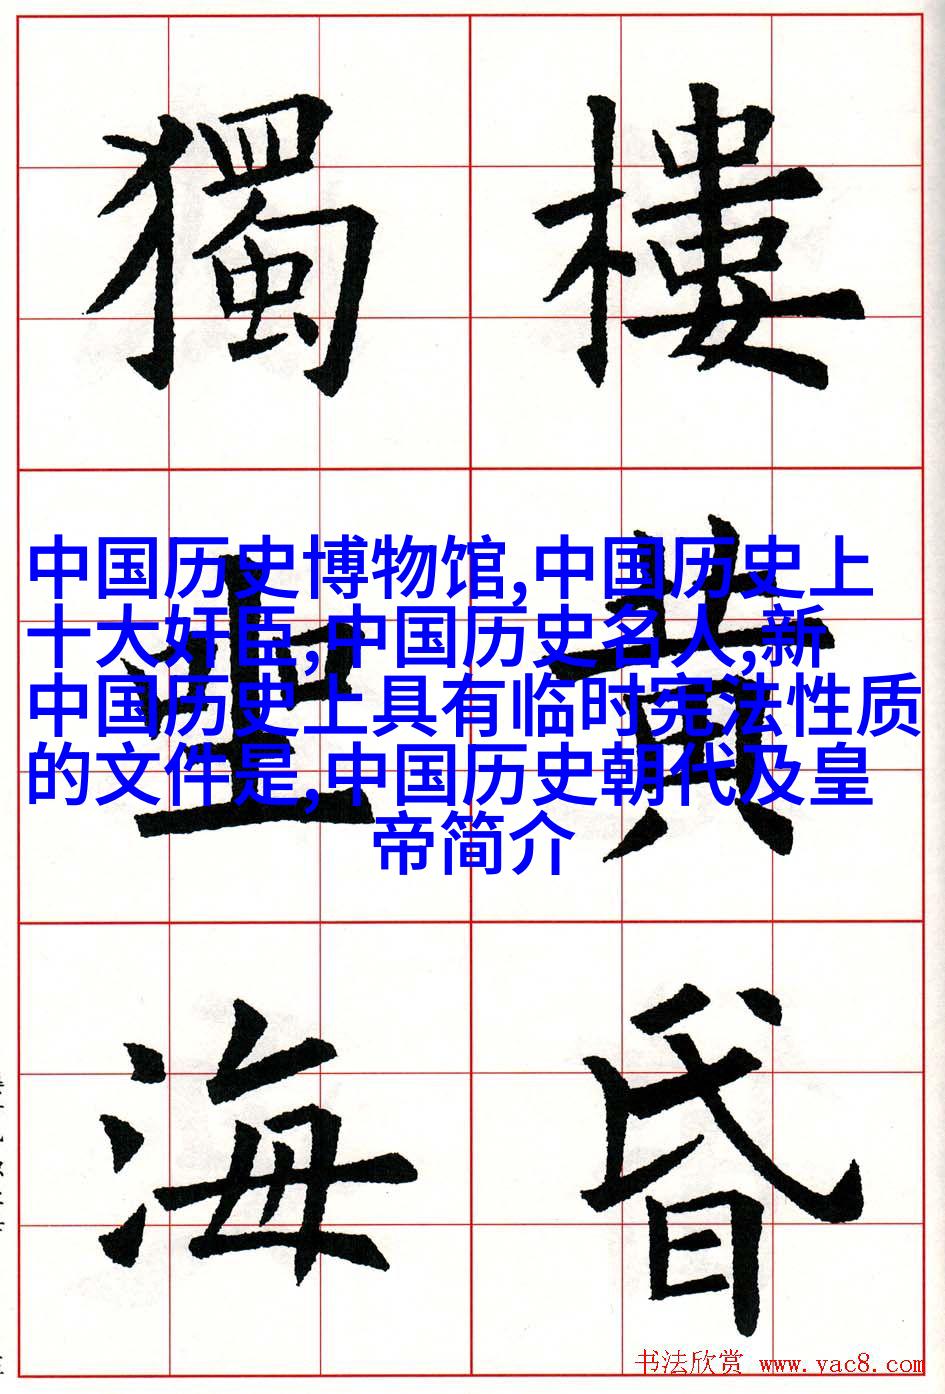 樓黄昏
獨坐海
中国历史博物馆,中国历史上
十大奸臣,中国历史名人,新
中国历史上具有临时宪法性质
的文件是,中国历史朝代及皇
帝简介
书法欣赏 www.yac8.com